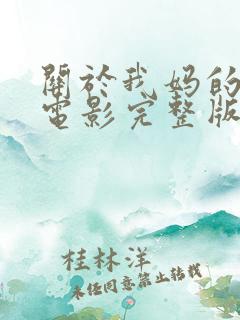 關於我媽的
電影完整版
桂林洋
未经同意禁止转载